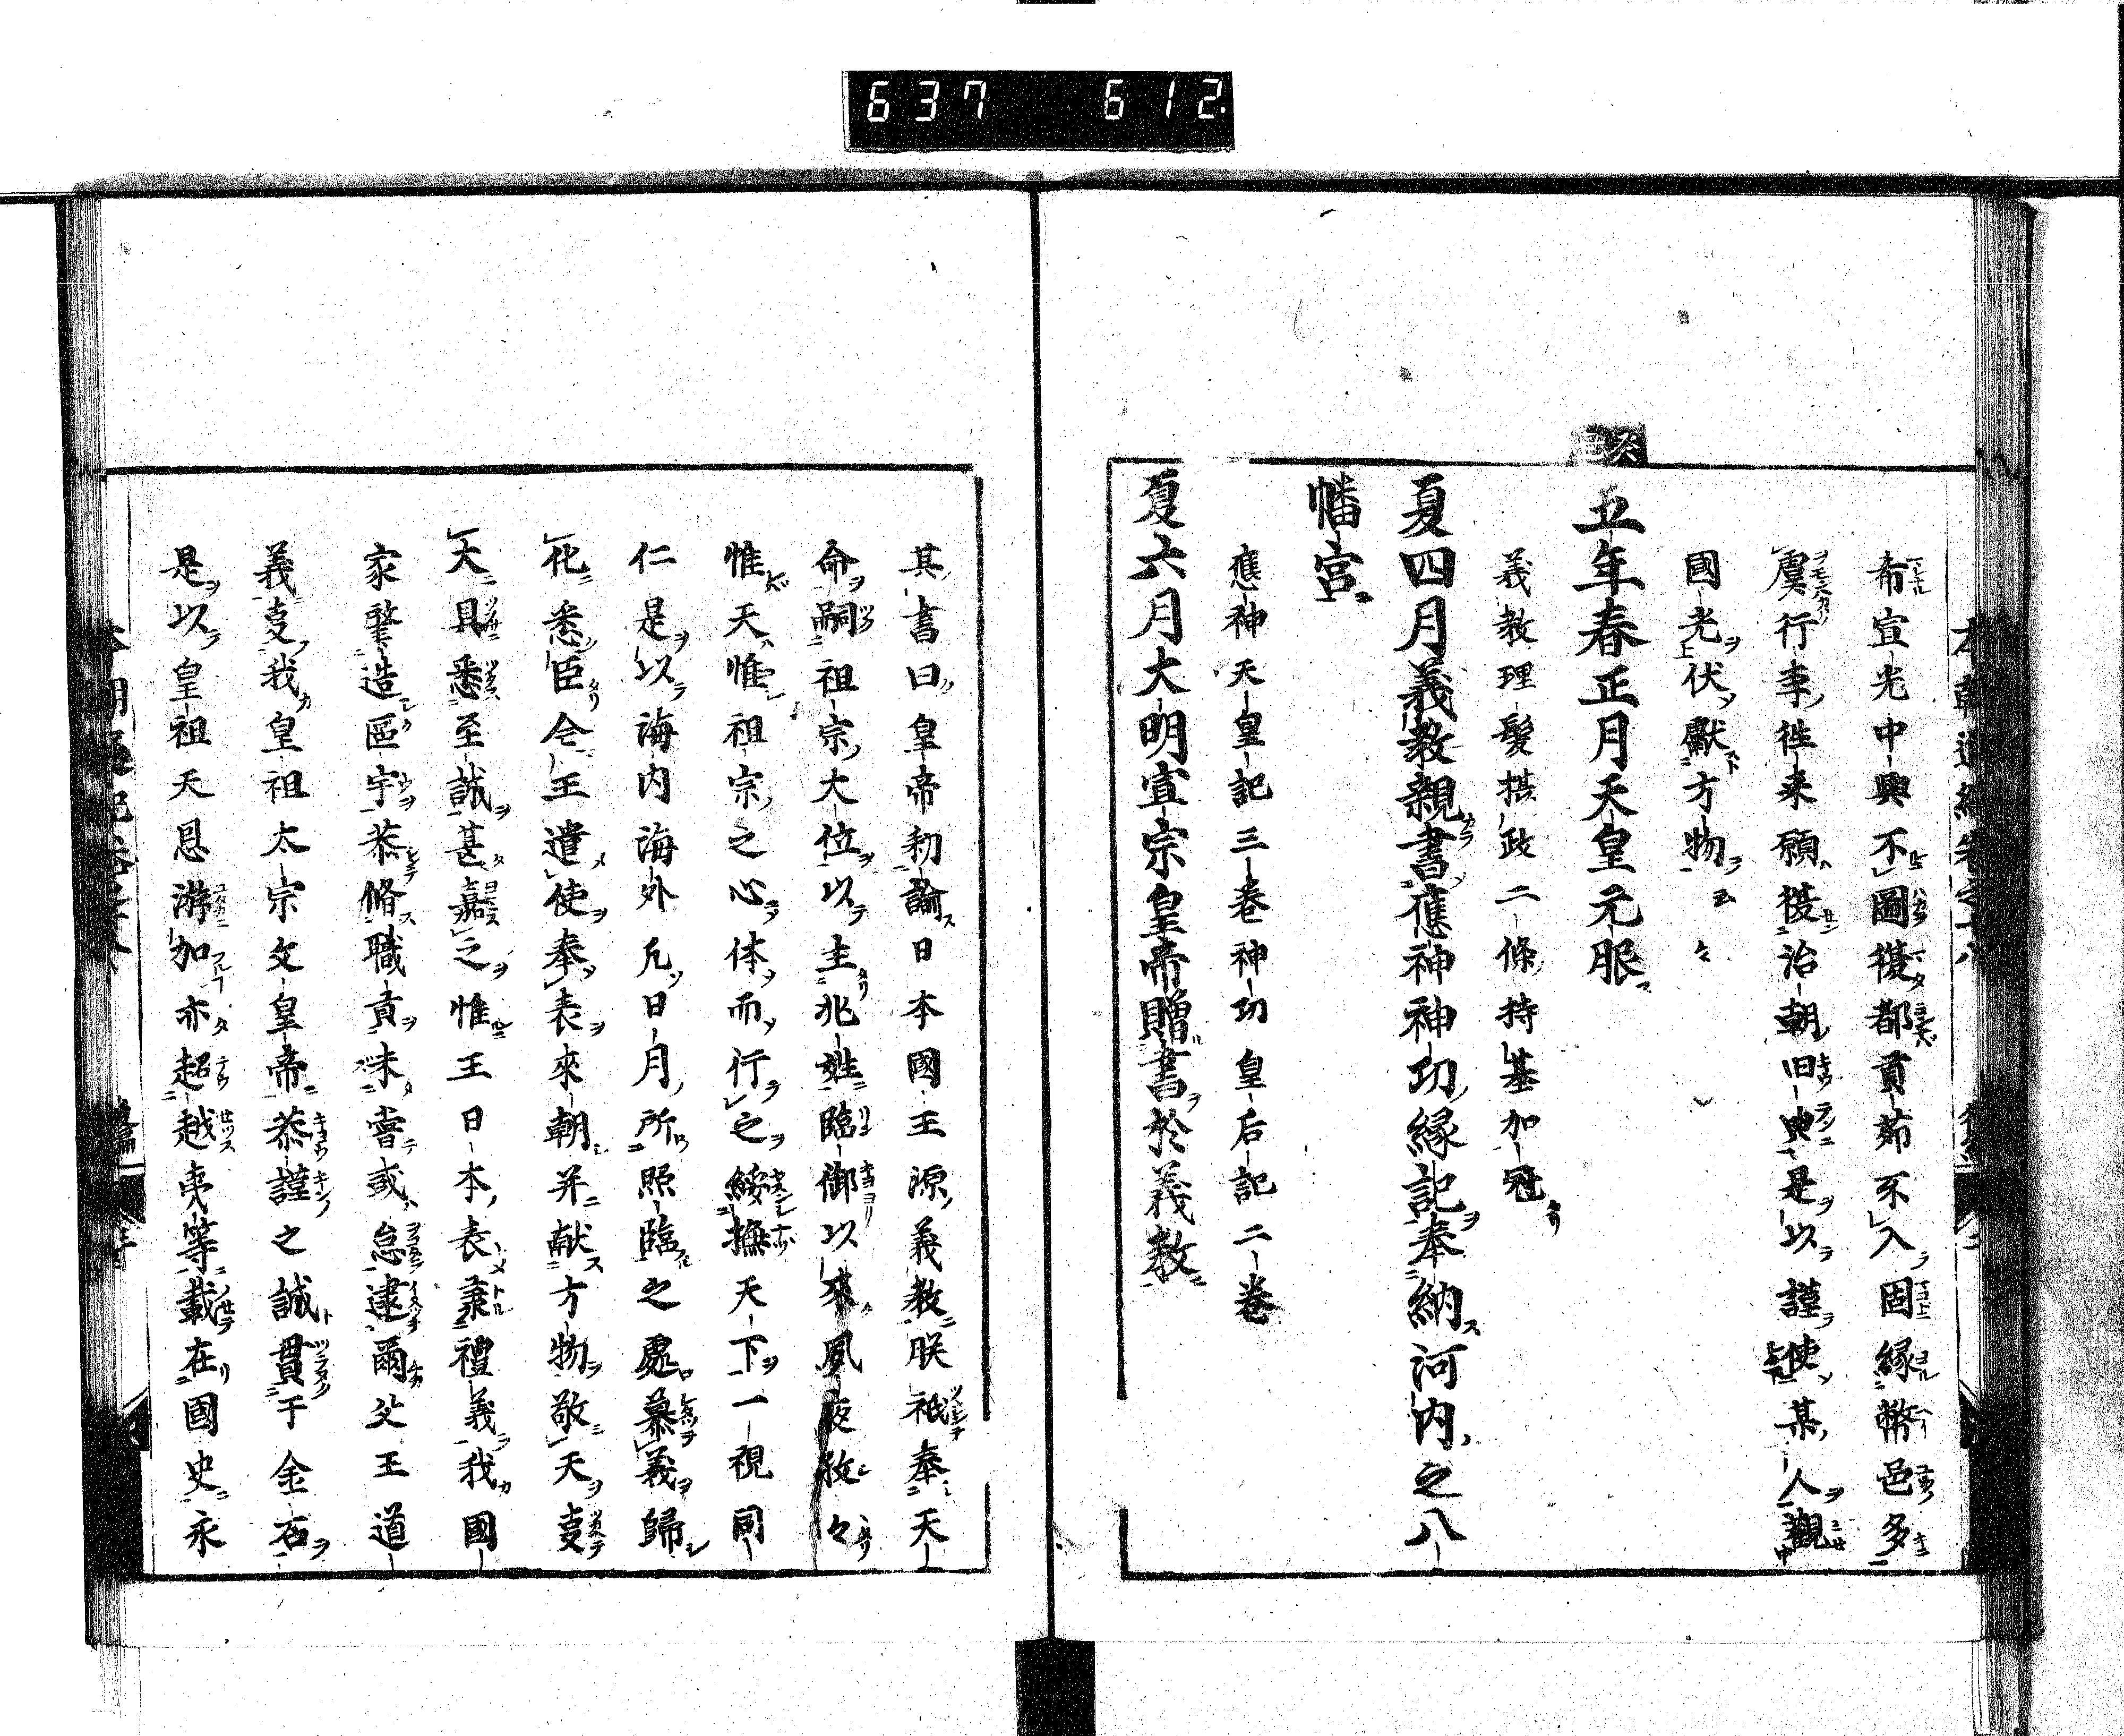 637 612
希宣光中興不圖復都貢茹不入固縁幣邑多
虞行李徃来願援治朝旧典是以謹使某人觀
國光伏獻方物云々
癸丑
五年春正月天皇元服
義教理髪摂政二條持基加冠
夏四月義教親書應神神功縁記奉納河内之八
幡宮
應神天皇記三卷神功皇后記二卷
夏六月大明宣宗皇帝贈書於義教
其書曰皇帝勅諭日本國王源義教朕祗奉天
命嗣祖宗大位以主兆姓臨御以來夙夜孜々
惟天惟祖宗之心体而行之綏撫天下一視同
仁是以海内海外凡日月所照臨之處慕義歸
化悉臣令王遣使奉表來朝并献方物敬天㕝
大具悉至誠甚嘉之惟王日本表秉禮義我國
家肇造區宇恭脩職貢未嘗或怠逮爾父王道
義㕝我皇祖太宗文皇帝恭謹之誠貫于金石
是以皇祖天恩游加亦超越夷等載在國史永